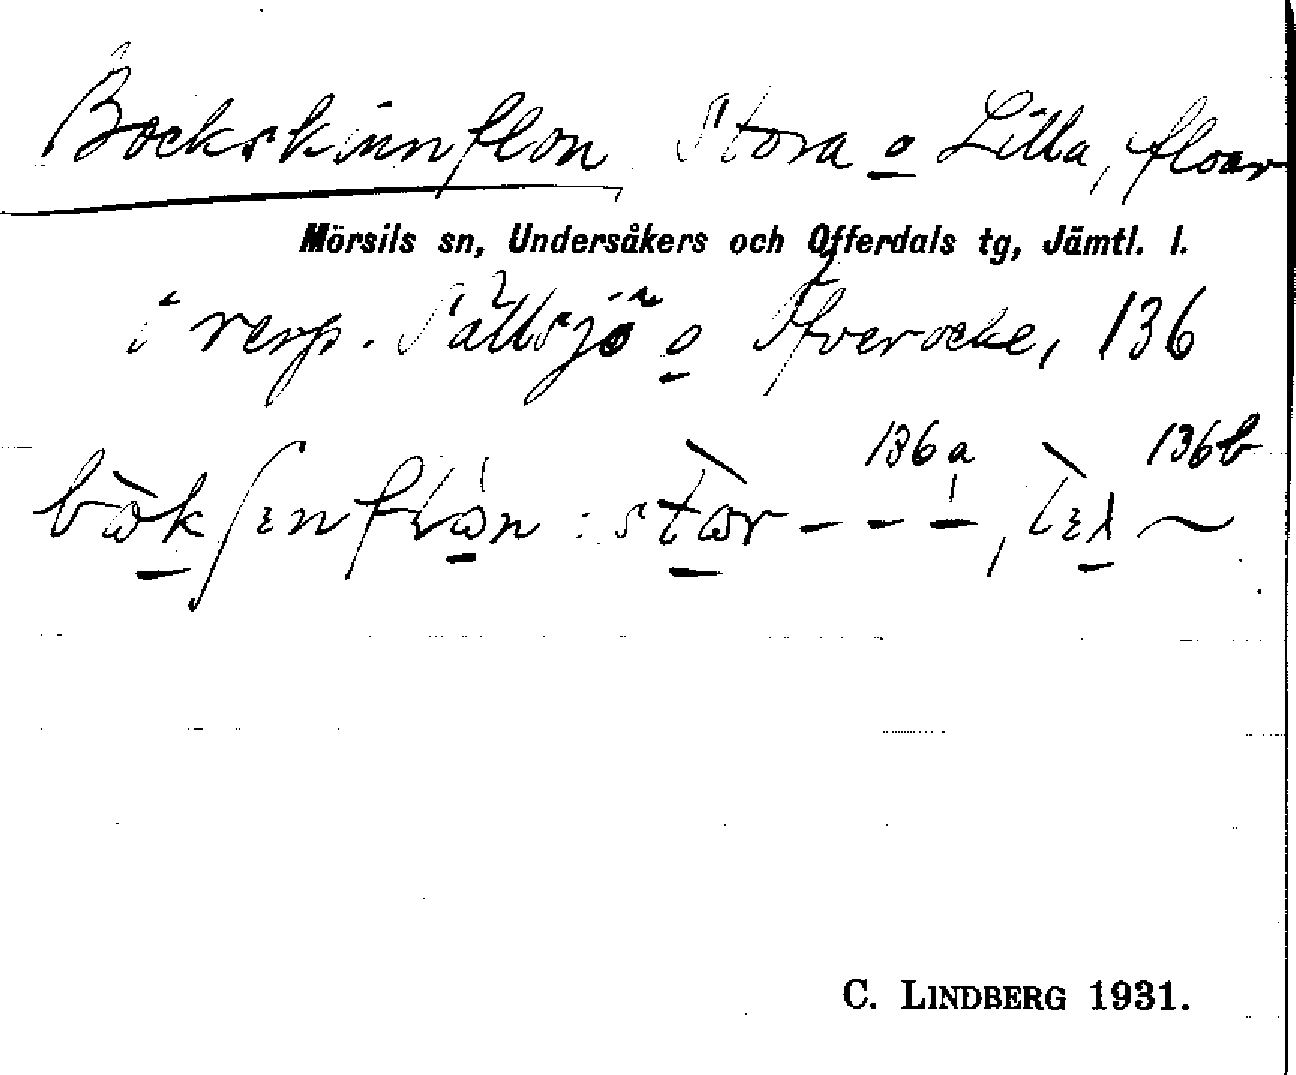 Bockskinnflon, Stora o Lilla, floar
Mörsils sn, Undersåkers och Offerdals tg, Jämtl. l.
i resp. Sällsjö o Ytterocke, 136
136a 136b
C. LINDBERG 1931.